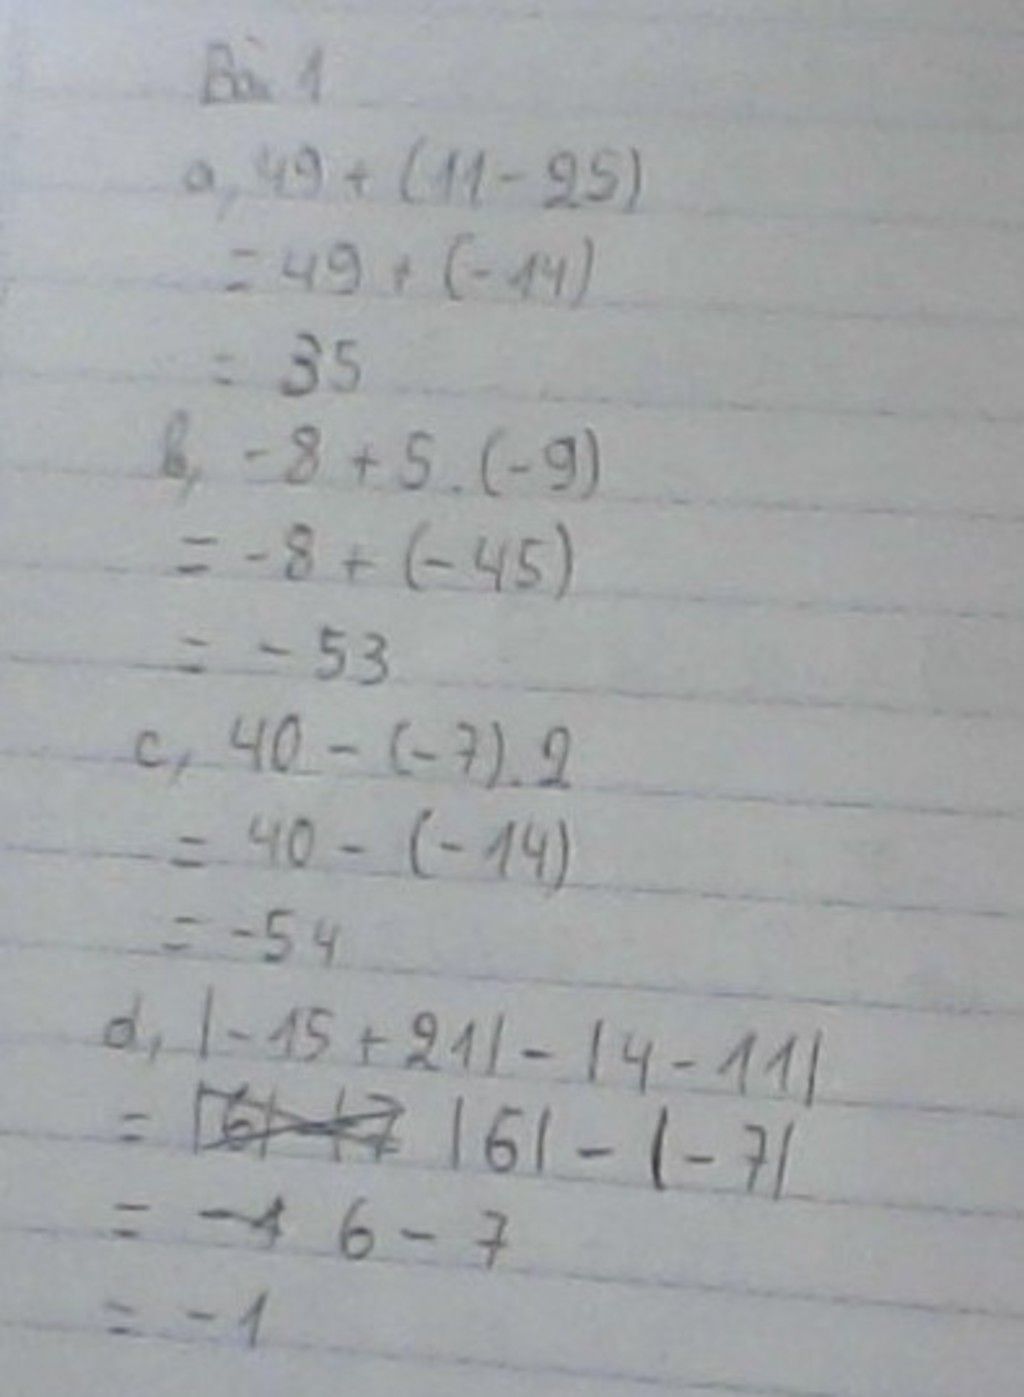 Bài 1
a, 49 + (11 - 25)
= 49 + (-14)
= 35
b, -8 + 5 . (-9)
= -8 + (-45)
= -53
c, 40 - (-7) . 2
= 40 - (-14)
= -54
d, |-15 + 21| - |4 - 11|
= |6| - |-7|
= 6 - 7
= -1